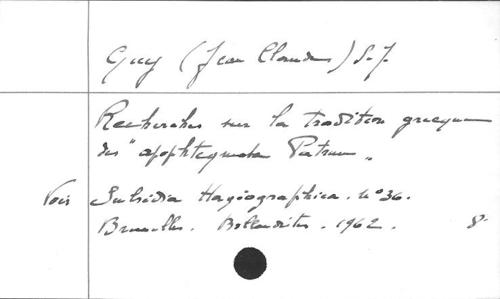 Guy (Jean Claude) S.J.
Recherches sur la tradition grecque
des "apophtegmata Patrum"
Voir Subsidia Hagiographica. n° 36.
Bruxelles. Bollandistes. 1962. 8°